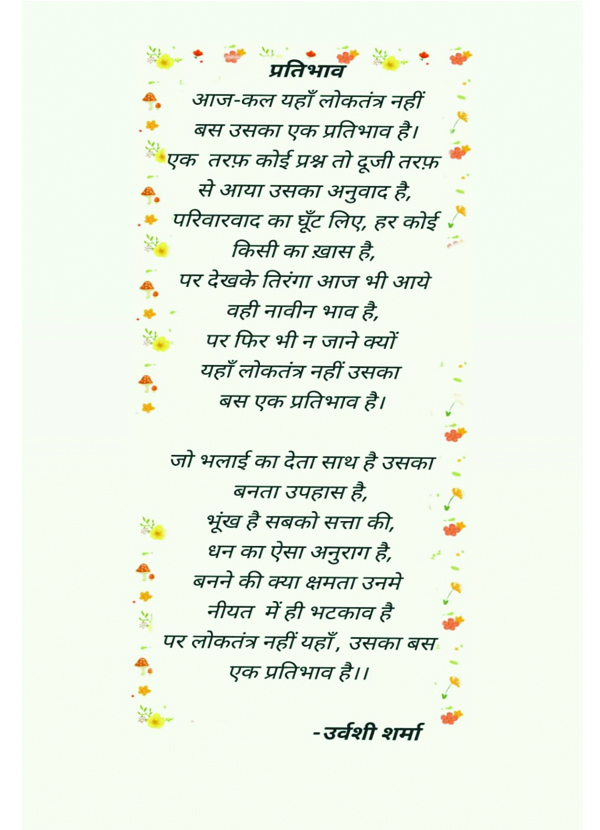 प्रतिभाव
आज-कल यहाँ लोकतंत्र नहीं
बस उसका एक प्रतिभाव है।
एक तरफ़ कोई प्रश्न तो दूजी तरफ़
से आया उसका अनुवाद है,
परिवारवाद का घूँट लिए, हर कोई
किसी का ख़ास है,
पर देखके तिरंगा आज भी आये
वही नावीन भाव है,
पर फिर भी न जाने क्यों
यहाँ लोकतंत्र नहीं उसका
बस एक प्रतिभाव है।
जो भलाई का देता साथ है उसका
बनता उपहास है,
भूंख है सबको सत्ता की,
धन का ऐसा अनुराग है,
बनने की क्या क्षमता उनमे
नीयत में ही भटकाव है
पर लोकतंत्र नहीं यहाँ, उसका बस
एक प्रतिभाव है।।
-उर्वशी शर्मा